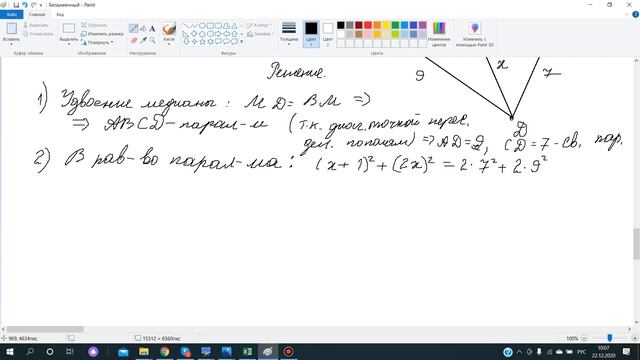 Безымянный - Paint
Файл
Главная
Вид
Вставить
Буфер обмена
Выделить
Обрезать
Изменить размер
Повернуть
Изображение
Инструменты
Кисти
Контур
Заливка
Фигуры
Толщина
Цвет 1
Цвет 2
Цвета
Изменение цветов
Изменить с помощью Paint 3D
9 x 7
D
Решение.
1) Удвоение медианы: MD = BM ⇒
⇒ ABCD - парал-м (т.к. диаг. точкой перес.
дел. пополам) ⇒ AD = 9, CD = 7 - св. пар.
2) В рав-во парал-ма: (x+1)² + (2x)² = 2·7² + 2·9²
969, 4634пкс
15312 × 6560пкс
100%
РУС
10:07
22.12.2020